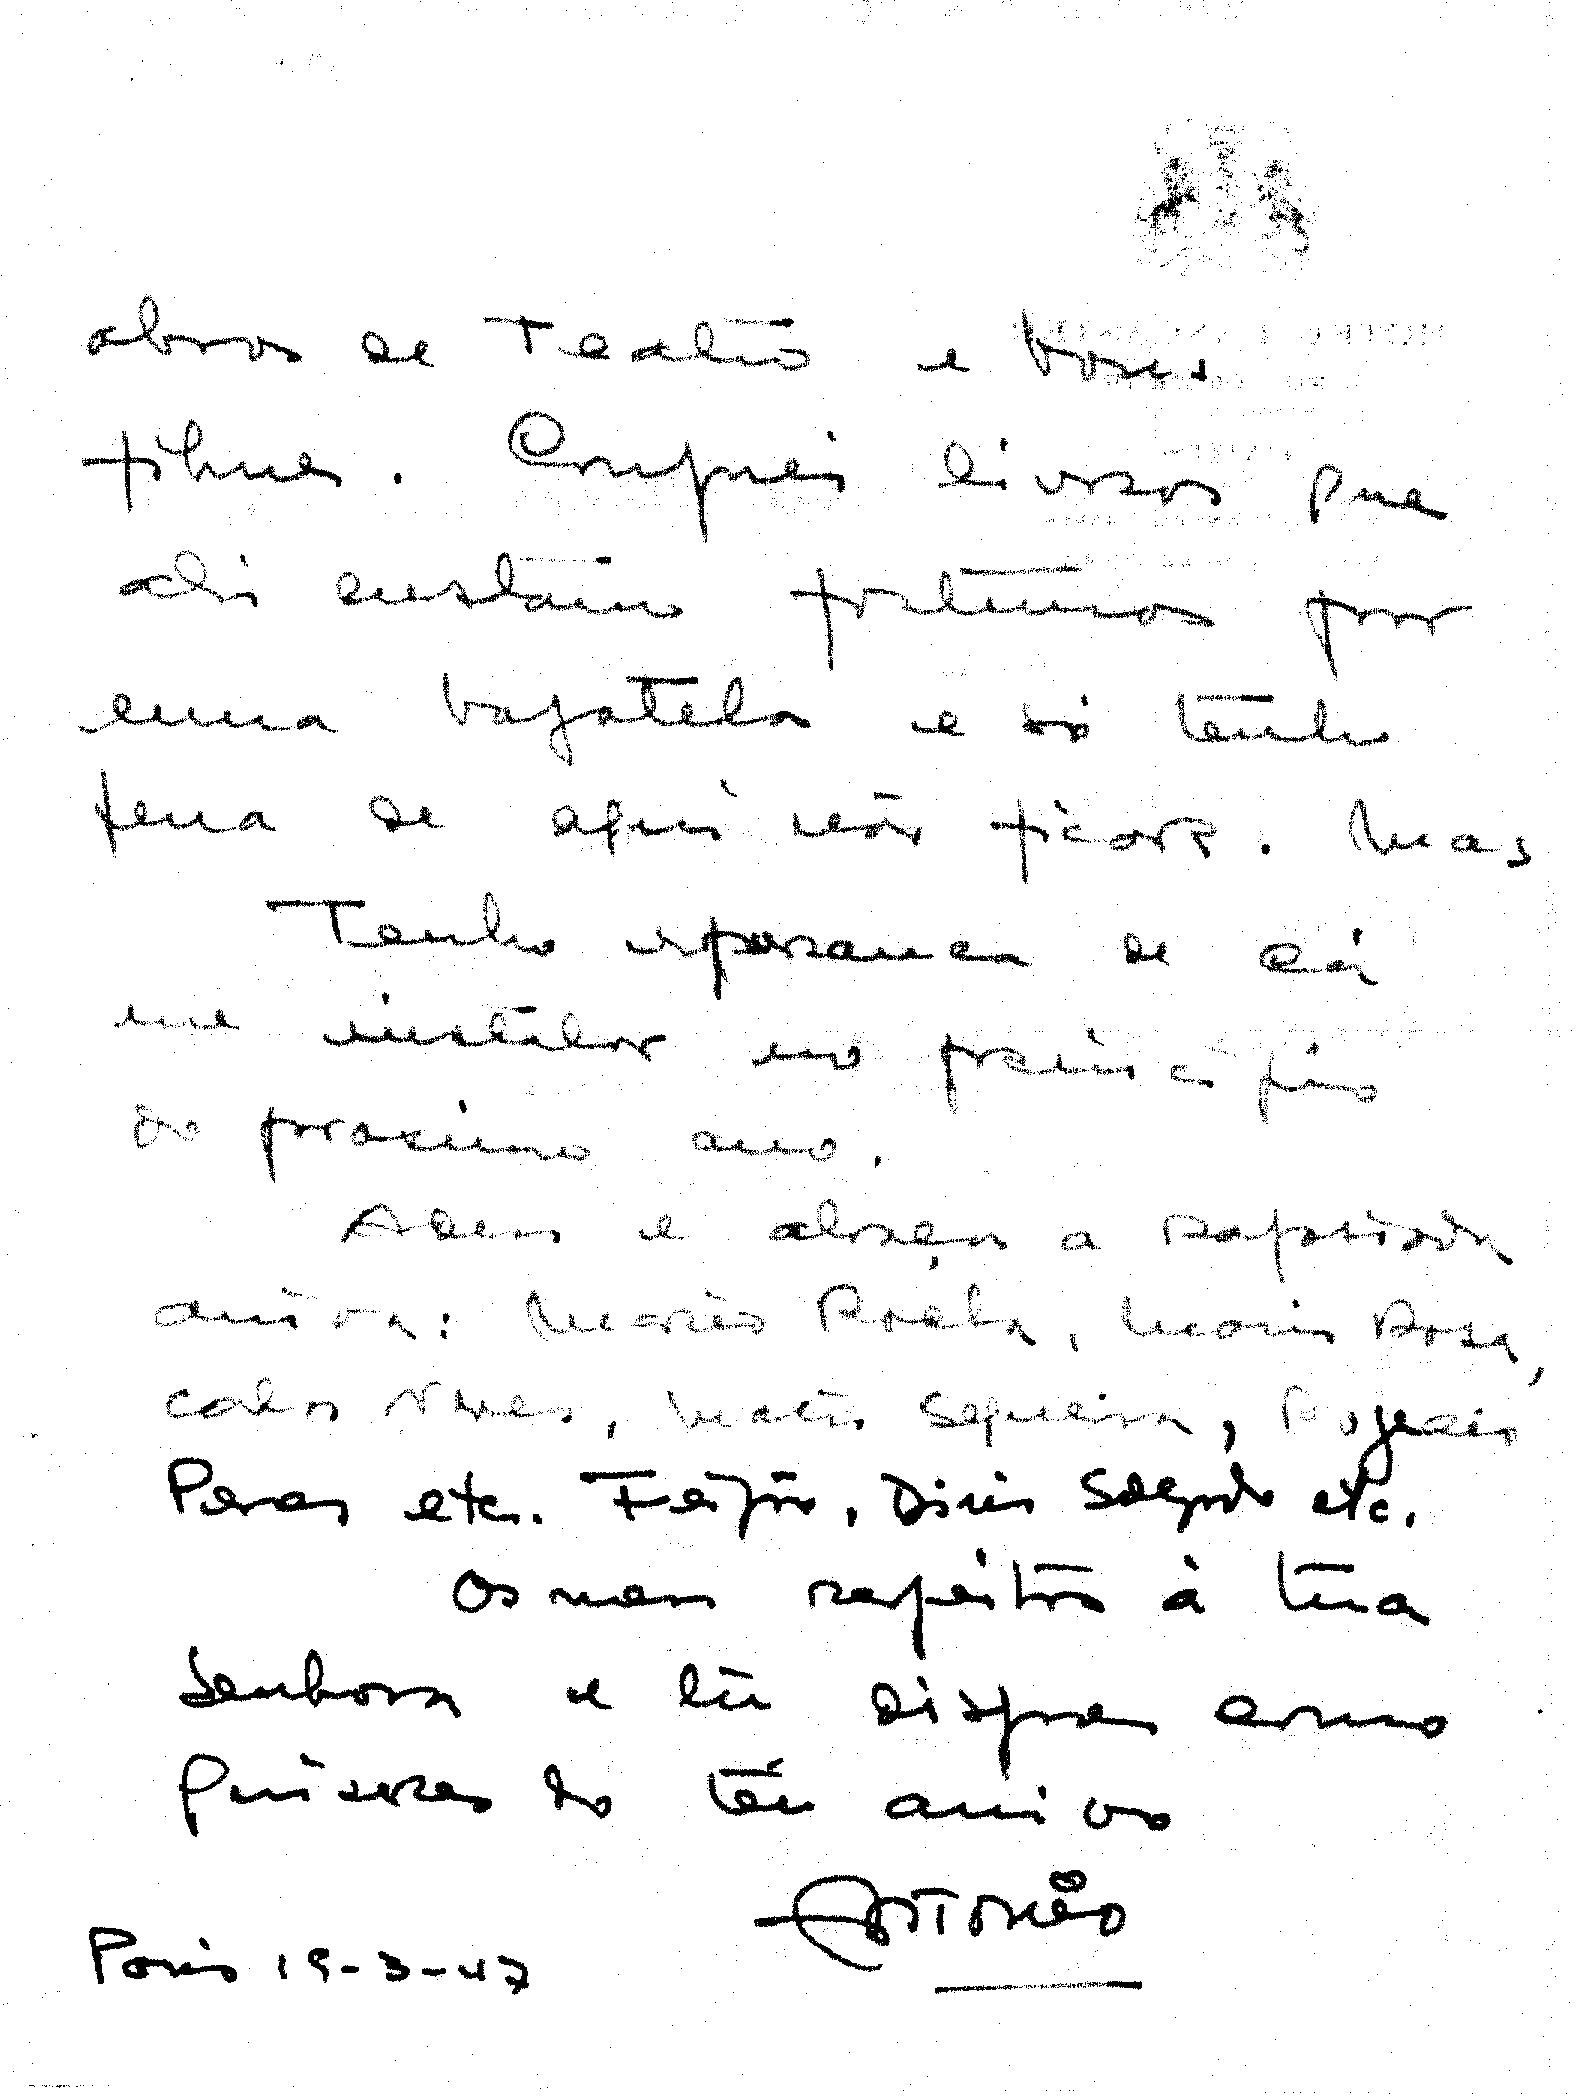 obras de Teatro e bons
filmes. Comprei livros que
ahi custam fortunas por
uma bagatela e só tenho
pena de aqui não ficar. Mas
Tenho esperança de cá
me instalar no principio
do proximo ano.
Adeus e abraça a rapasiada
amiga: Mario Rocha, Mario Rosa,
Carlos Neves, Matos Sequeira, Rogerio
Peres etc. Feijó, Dinis Salgado etc.
Os meus respeitos à tua
Senhora e tu dispoes como
quiseres do teu amigo
Antonio
Paris 19-3-47